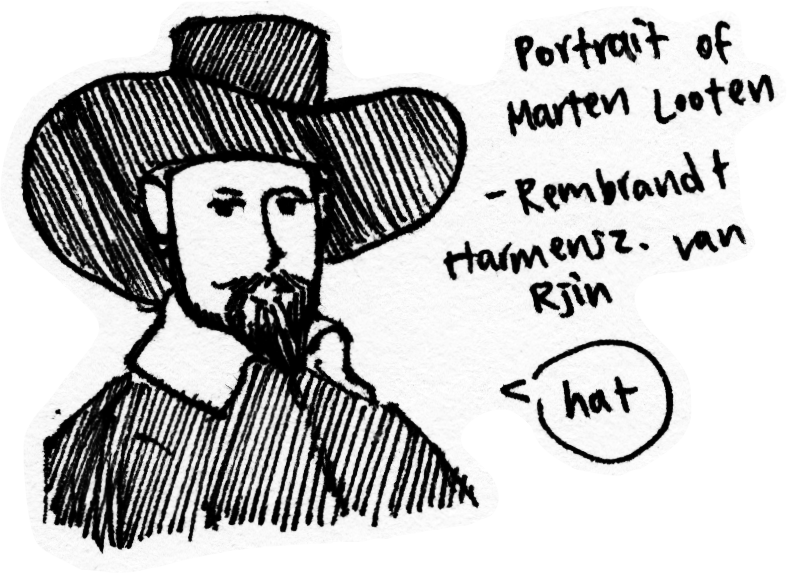 Portrait of
Marten Looten
-Rembrandt
Harmensz. van
Rjin
hat